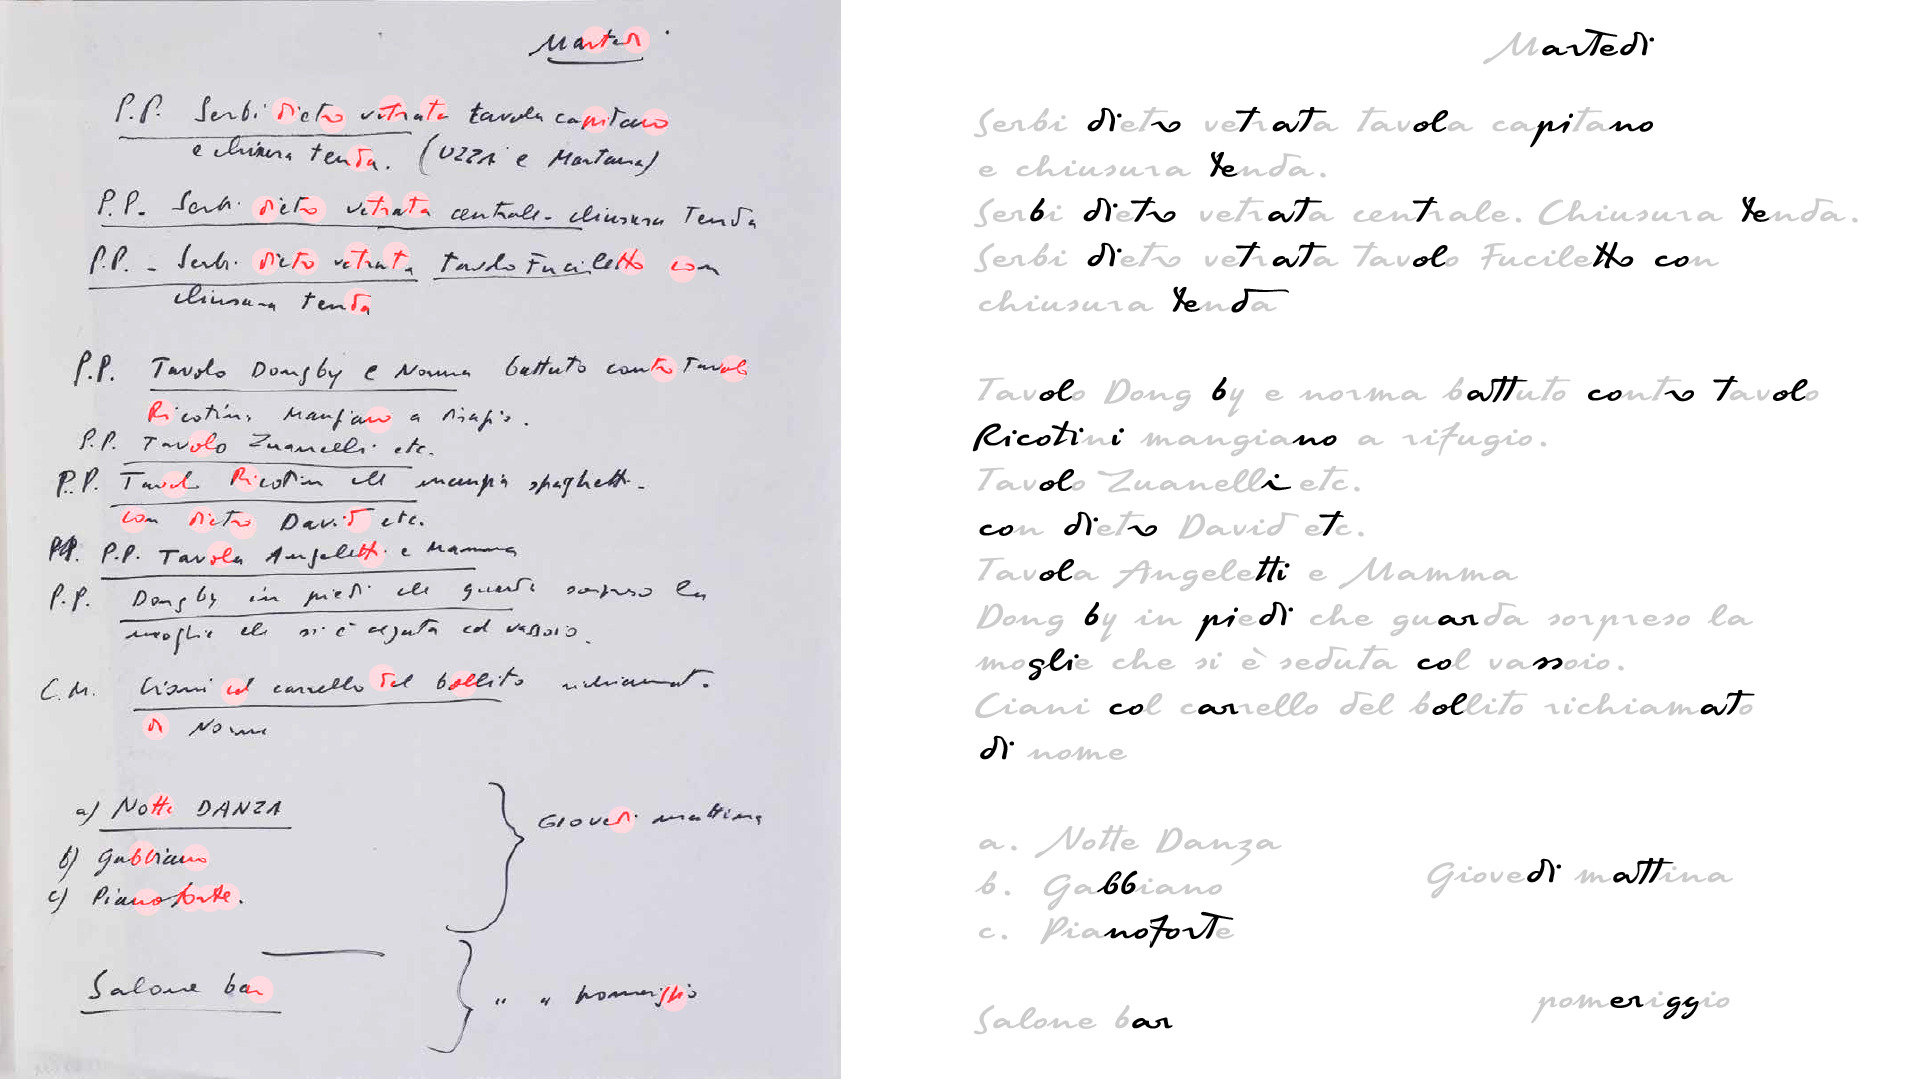 Martedì
P.P. Serbi dietro vetrata tavola capitano
e chiusura tenda. (UZZI e Mortana)
P.P. - Serbi dietro vetrata centrale - chiusura Tenda
P.P. - Serbi dietro vetrata tavolo Fuciletto con
chiusura tenda
P.P. Tavolo Dongby e Norma battuto contro Tavolo
Ricotini mangiano a rifugio.
P.P. Tavolo Zuanelli etc.
P.P. Tavolo Ricotini che mangia spaghetti -
con dietro David etc.
P.P. P.P. Tavola Angeletti e Mamma
P.P. Dongby in piedi che guarda sorpreso la
moglie che si è seduta col vassoio.
C.M. Ciani col carrello del bollito richiamato
di Nome
a) Notte DANZA
b) Gabbiano
c) Pianoforte.
Giovedì mattina
Salone bar
" " pomeriggio
Martedì
Serbi dietro vetrata tavola capitano
e chiusura tenda.
Serbi dietro vetrata centrale. Chiusura tenda.
Serbi dietro vetrata tavolo Fuciletto con
chiusura tenda
Tavolo Dong by e norma battuto contro tavolo
Ricotini mangiano a rifugio.
Tavolo Zuanelli etc.
con dietro David etc.
Tavola Angeletti e Mamma
Dong by in piedi che guarda sorpreso la
moglie che si è seduta col vassoio.
Ciani col carrello del bollito richiamato
di nome
a. Notte Danza
b. Gabbiano
c. Pianoforte
Giovedì mattina
Salone bar
pomeriggio